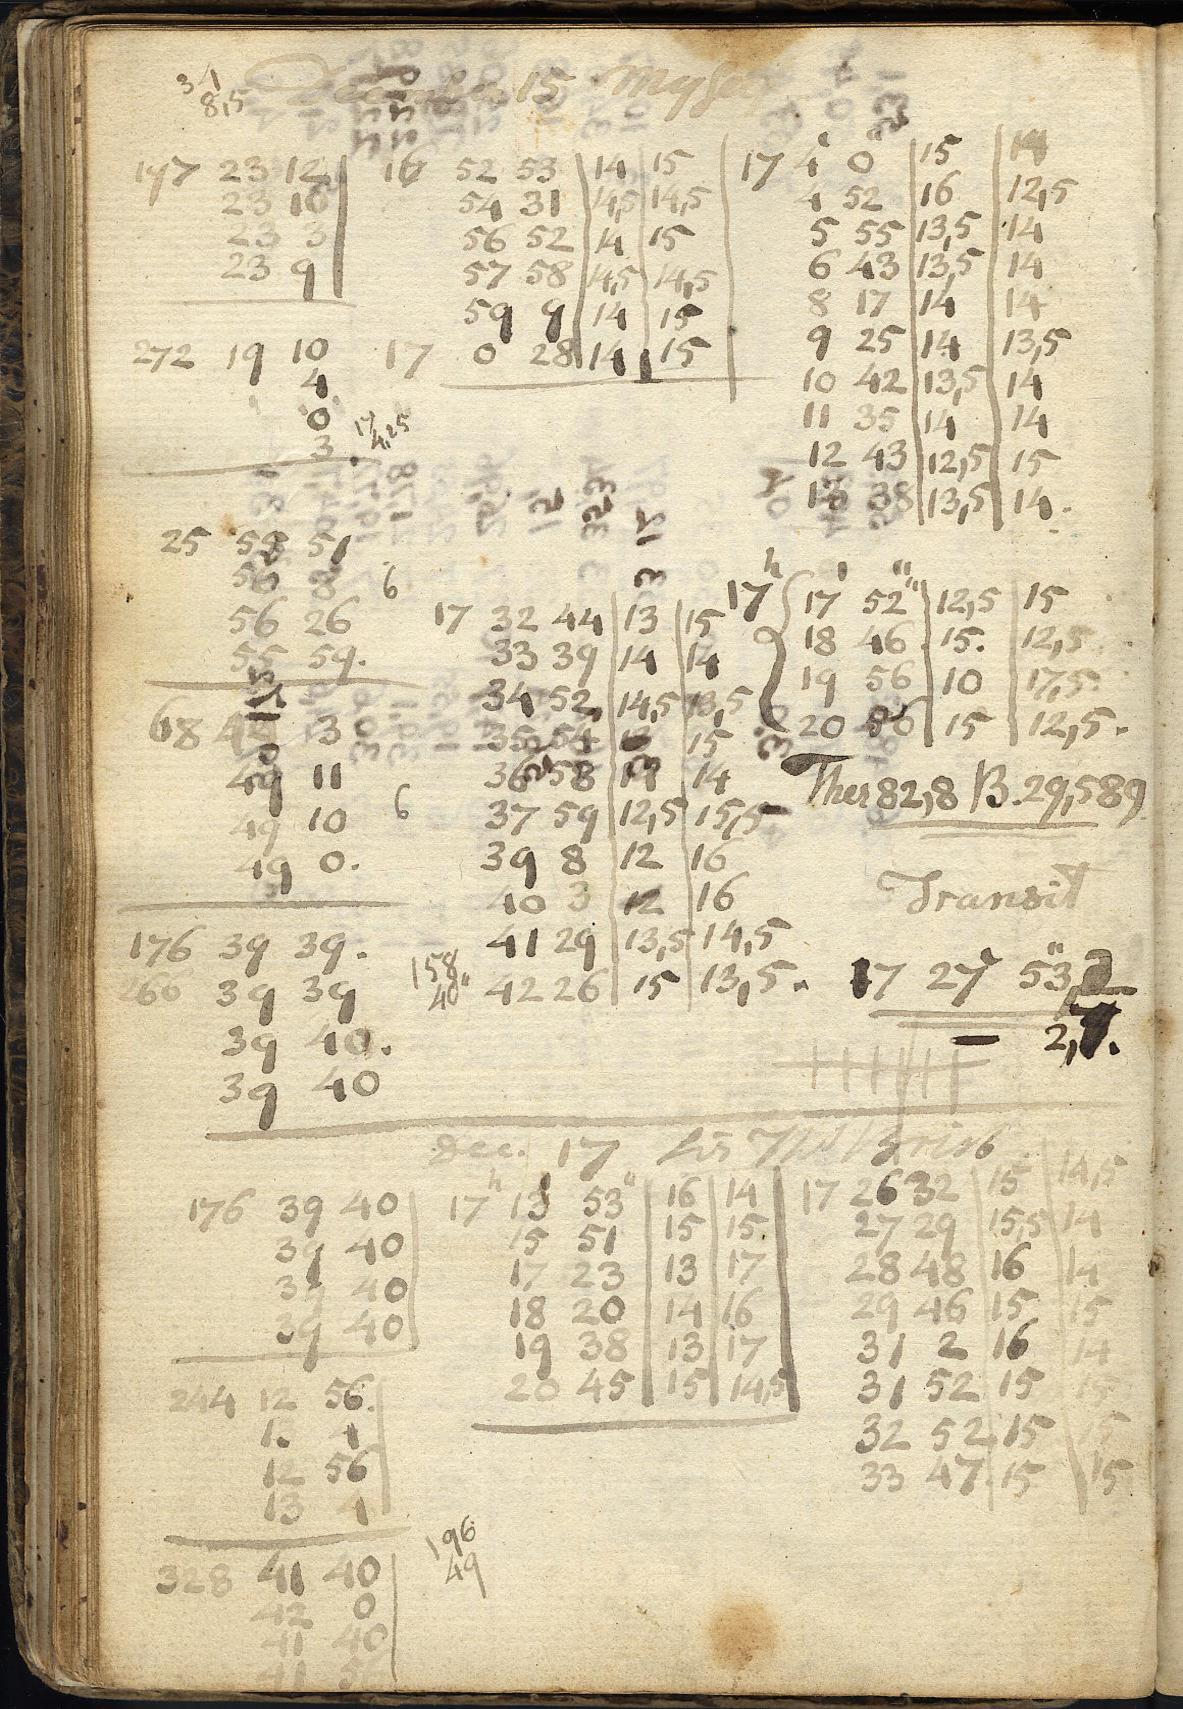 December 15 Myself
34
8,5
197 23 12
23 10
23 3
23 9
272 19 10
4
0
3
17
4,25
25 55 51
56 8
56 26
55 59.
6
68 49 3
49 11
49 10
49 0.
6
176 39 39.
260 39 39
39 40.
39 40
158
40"
16 52 53 14 15
54 31 14,5 14,5
56 52 14 15
57 58 14,5 14,5
59 9 14 15
17 0 28 14 15
17 32 44 13 15
33 39 14 14
34 52 14,5 13,5
35 54 15
36 58 14 14
37 59 12,5 15,5
39 8 12 16
40 3 12 16
41 29 13,5 14,5
42 26 15 13,5.
17 4' 0" 15 14
4 52 16 12,5
5 55 13,5 14
6 43 13,5 14
8 17 14 14
9 25 14 13,5
10 42 13,5 14
11 35 14 14
12 43 12,5 15
13 38 13,5 14.
17h 17' 52" 12,5 15
18 46 15. 12,5
19 56 10 17,5
20 56 15 12,5.
Ther 82,8 B. 29,589
Transit
17 27' 53",2
— 2,7.
Dec. 17
176 39 40
39 40
39 40
39 40
244 12 56.
13 4
12 56
13 4
328 41 40
42 0
41 40
41
196
49
17h 13' 53" 16 14
15 51 15 15
17 23 13 17
18 20 14 16
19 38 13 17
20 45 15 14,5
17 26 32 15 14,5
27 29 15,5 14
28 48 16 14
29 46 15 15
31 2 16 14
31 52 15 15
32 52 15 15
33 47 15 15